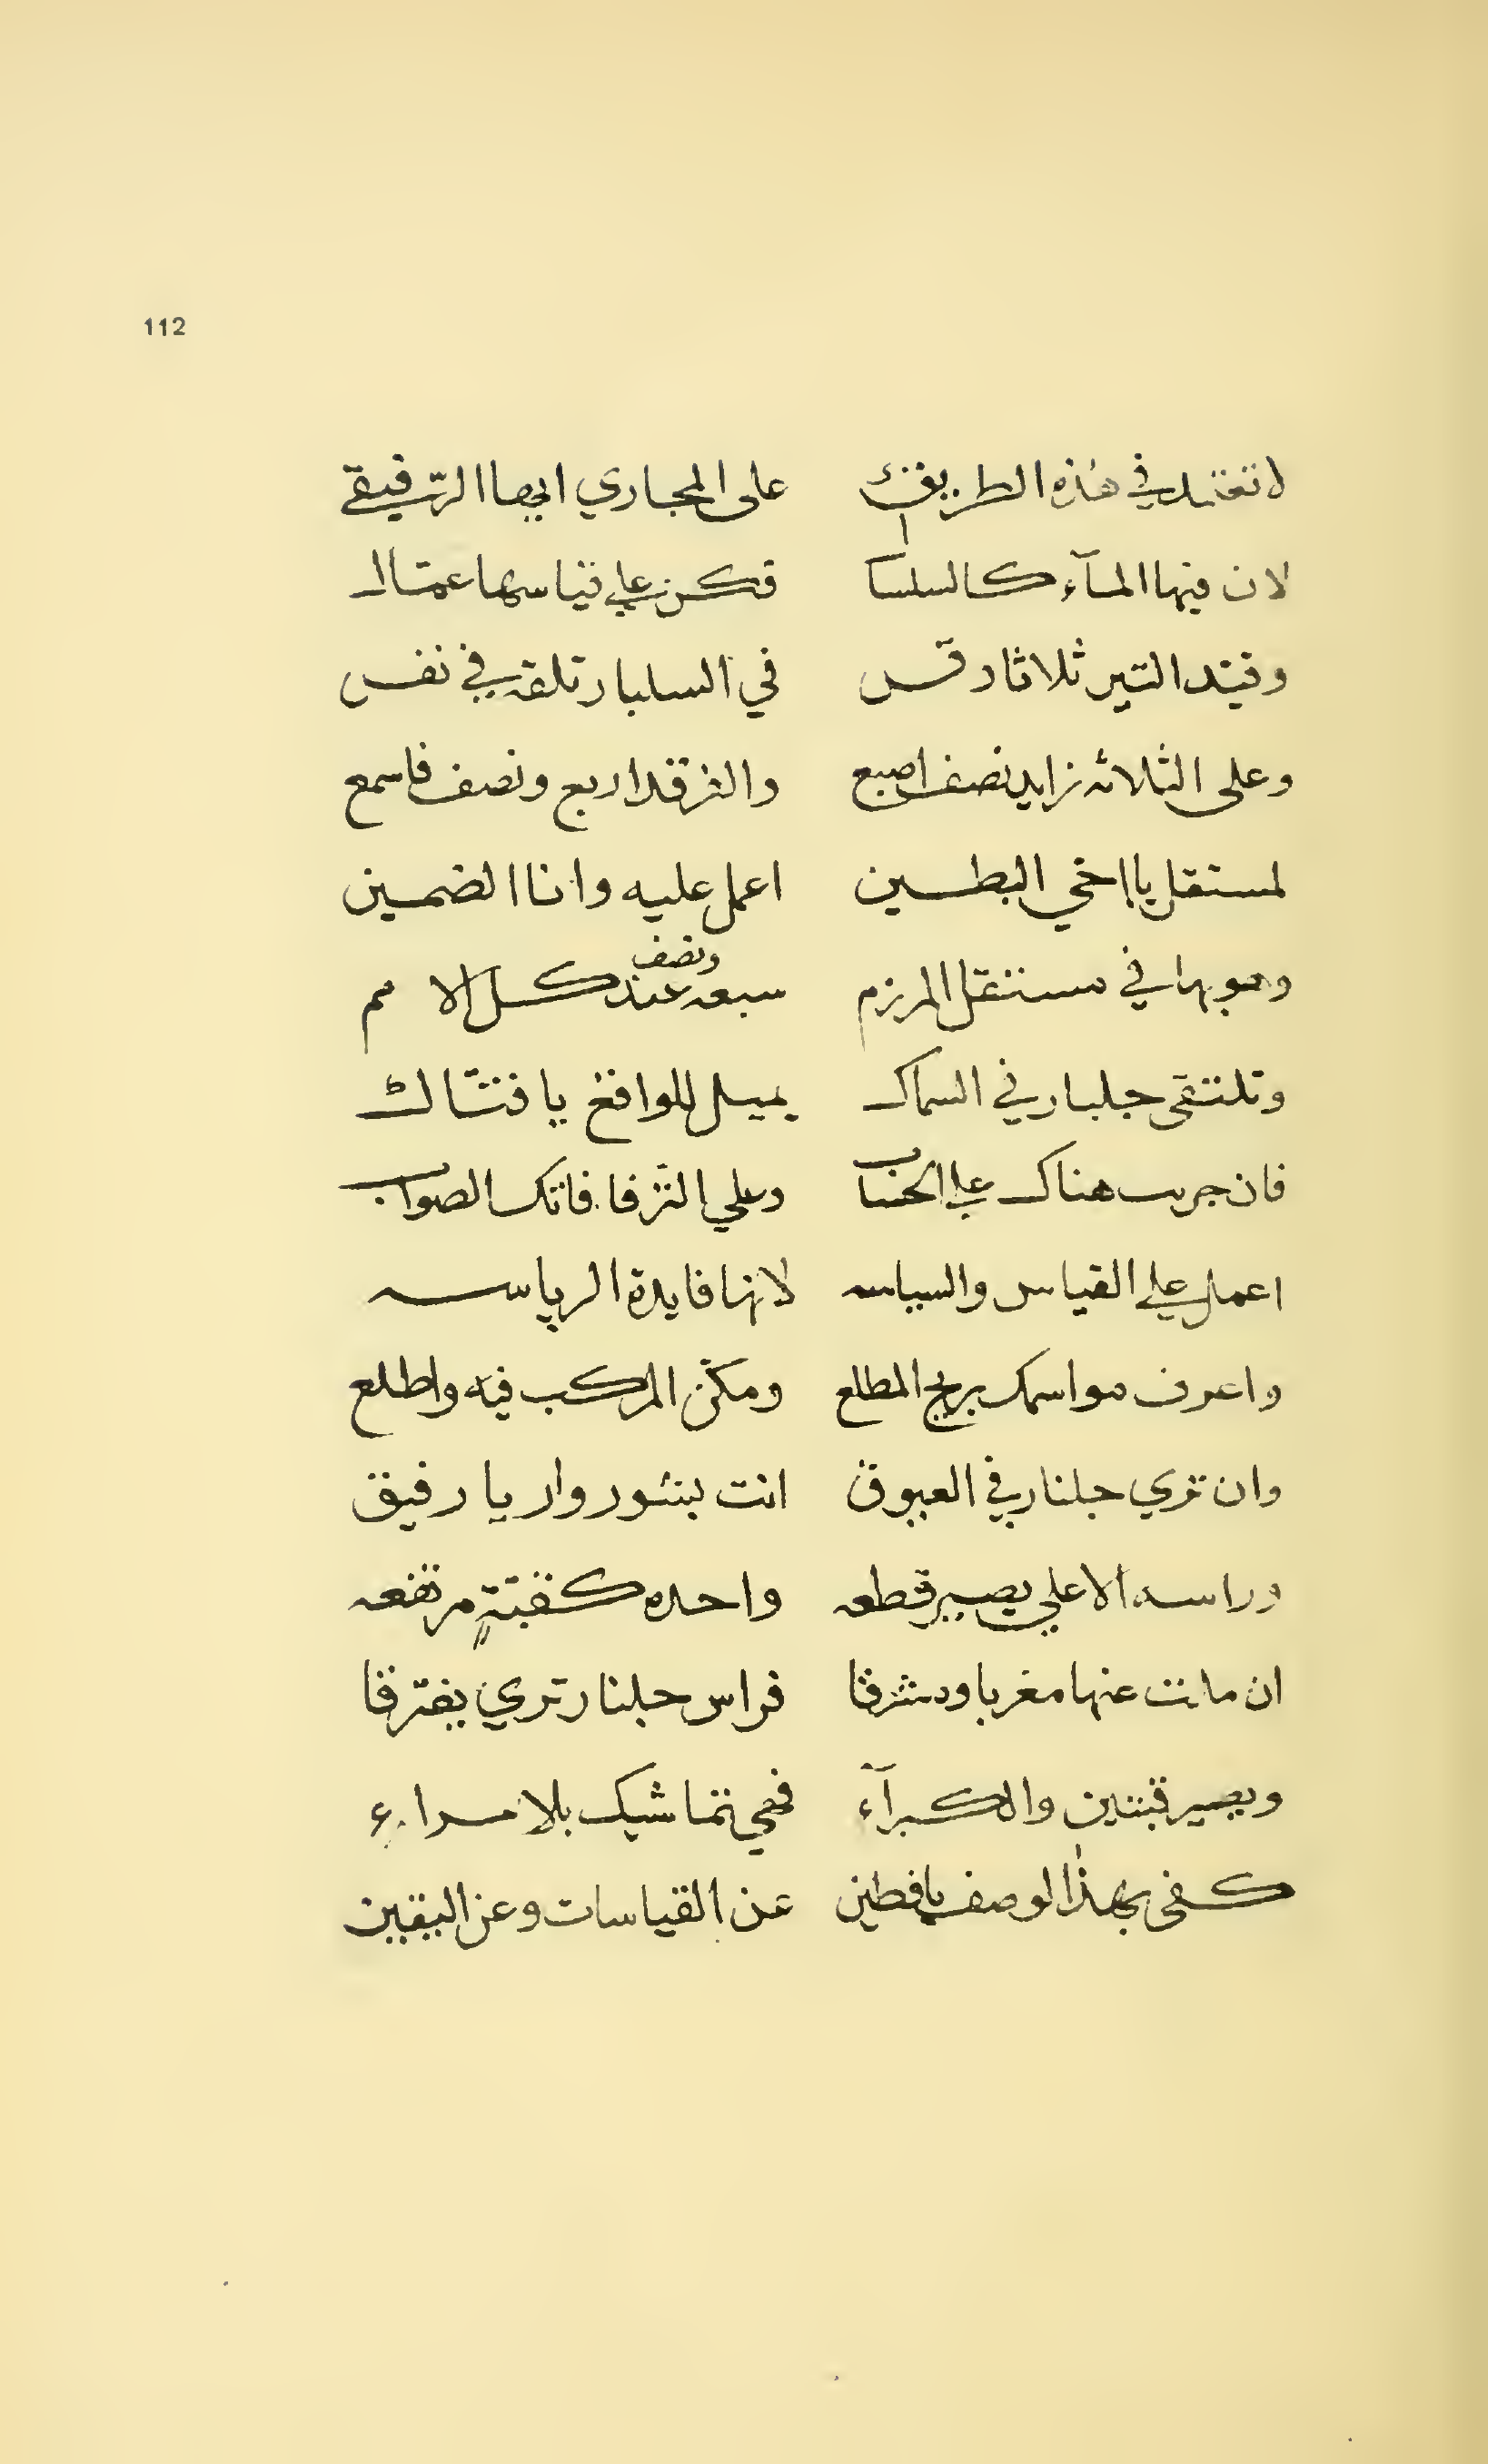 112
لا تعتمد في هذه الطريق على المجاري ايها الرفيقي
لان فيها المآء كالسلسا فكن علي قياسها عمال
وقيد التير ثلاثا وقس في السلبار تلقه في نفس
وعلى الثلاثه زايد نصف اصبع والفرقد اربع ونصف فاسمع
لمستقل يا اخي البطين اعمل عليه وانا الضمين
في مستقل المرزم سبعه ونصف عند كل الامم
وتلتقي جلبار في السماك يميل للواقع يا فتاك
فان جريت هناك علي الحساب وعلي الترفا فاتك الصواب
اعمل علي القياس والسياسه لانها فايدة الرياسه
واعرف مواسمك بريح المطلع ومكن المركب فيه واطلع
وان تري جلنار في العيوق انت بنوروار يا رفيق
وراسه الاعلي يصير قطعه واحده كقبة مرتفعه
ان مانت عنها مغربا ومشرقا فراس جلنار تري يفترقا
ويصير قبتين والكبرآء فهي تماشيك بلا مراء
كفى بهذا الوصف يا فطين عن القياسات وعن اليقين